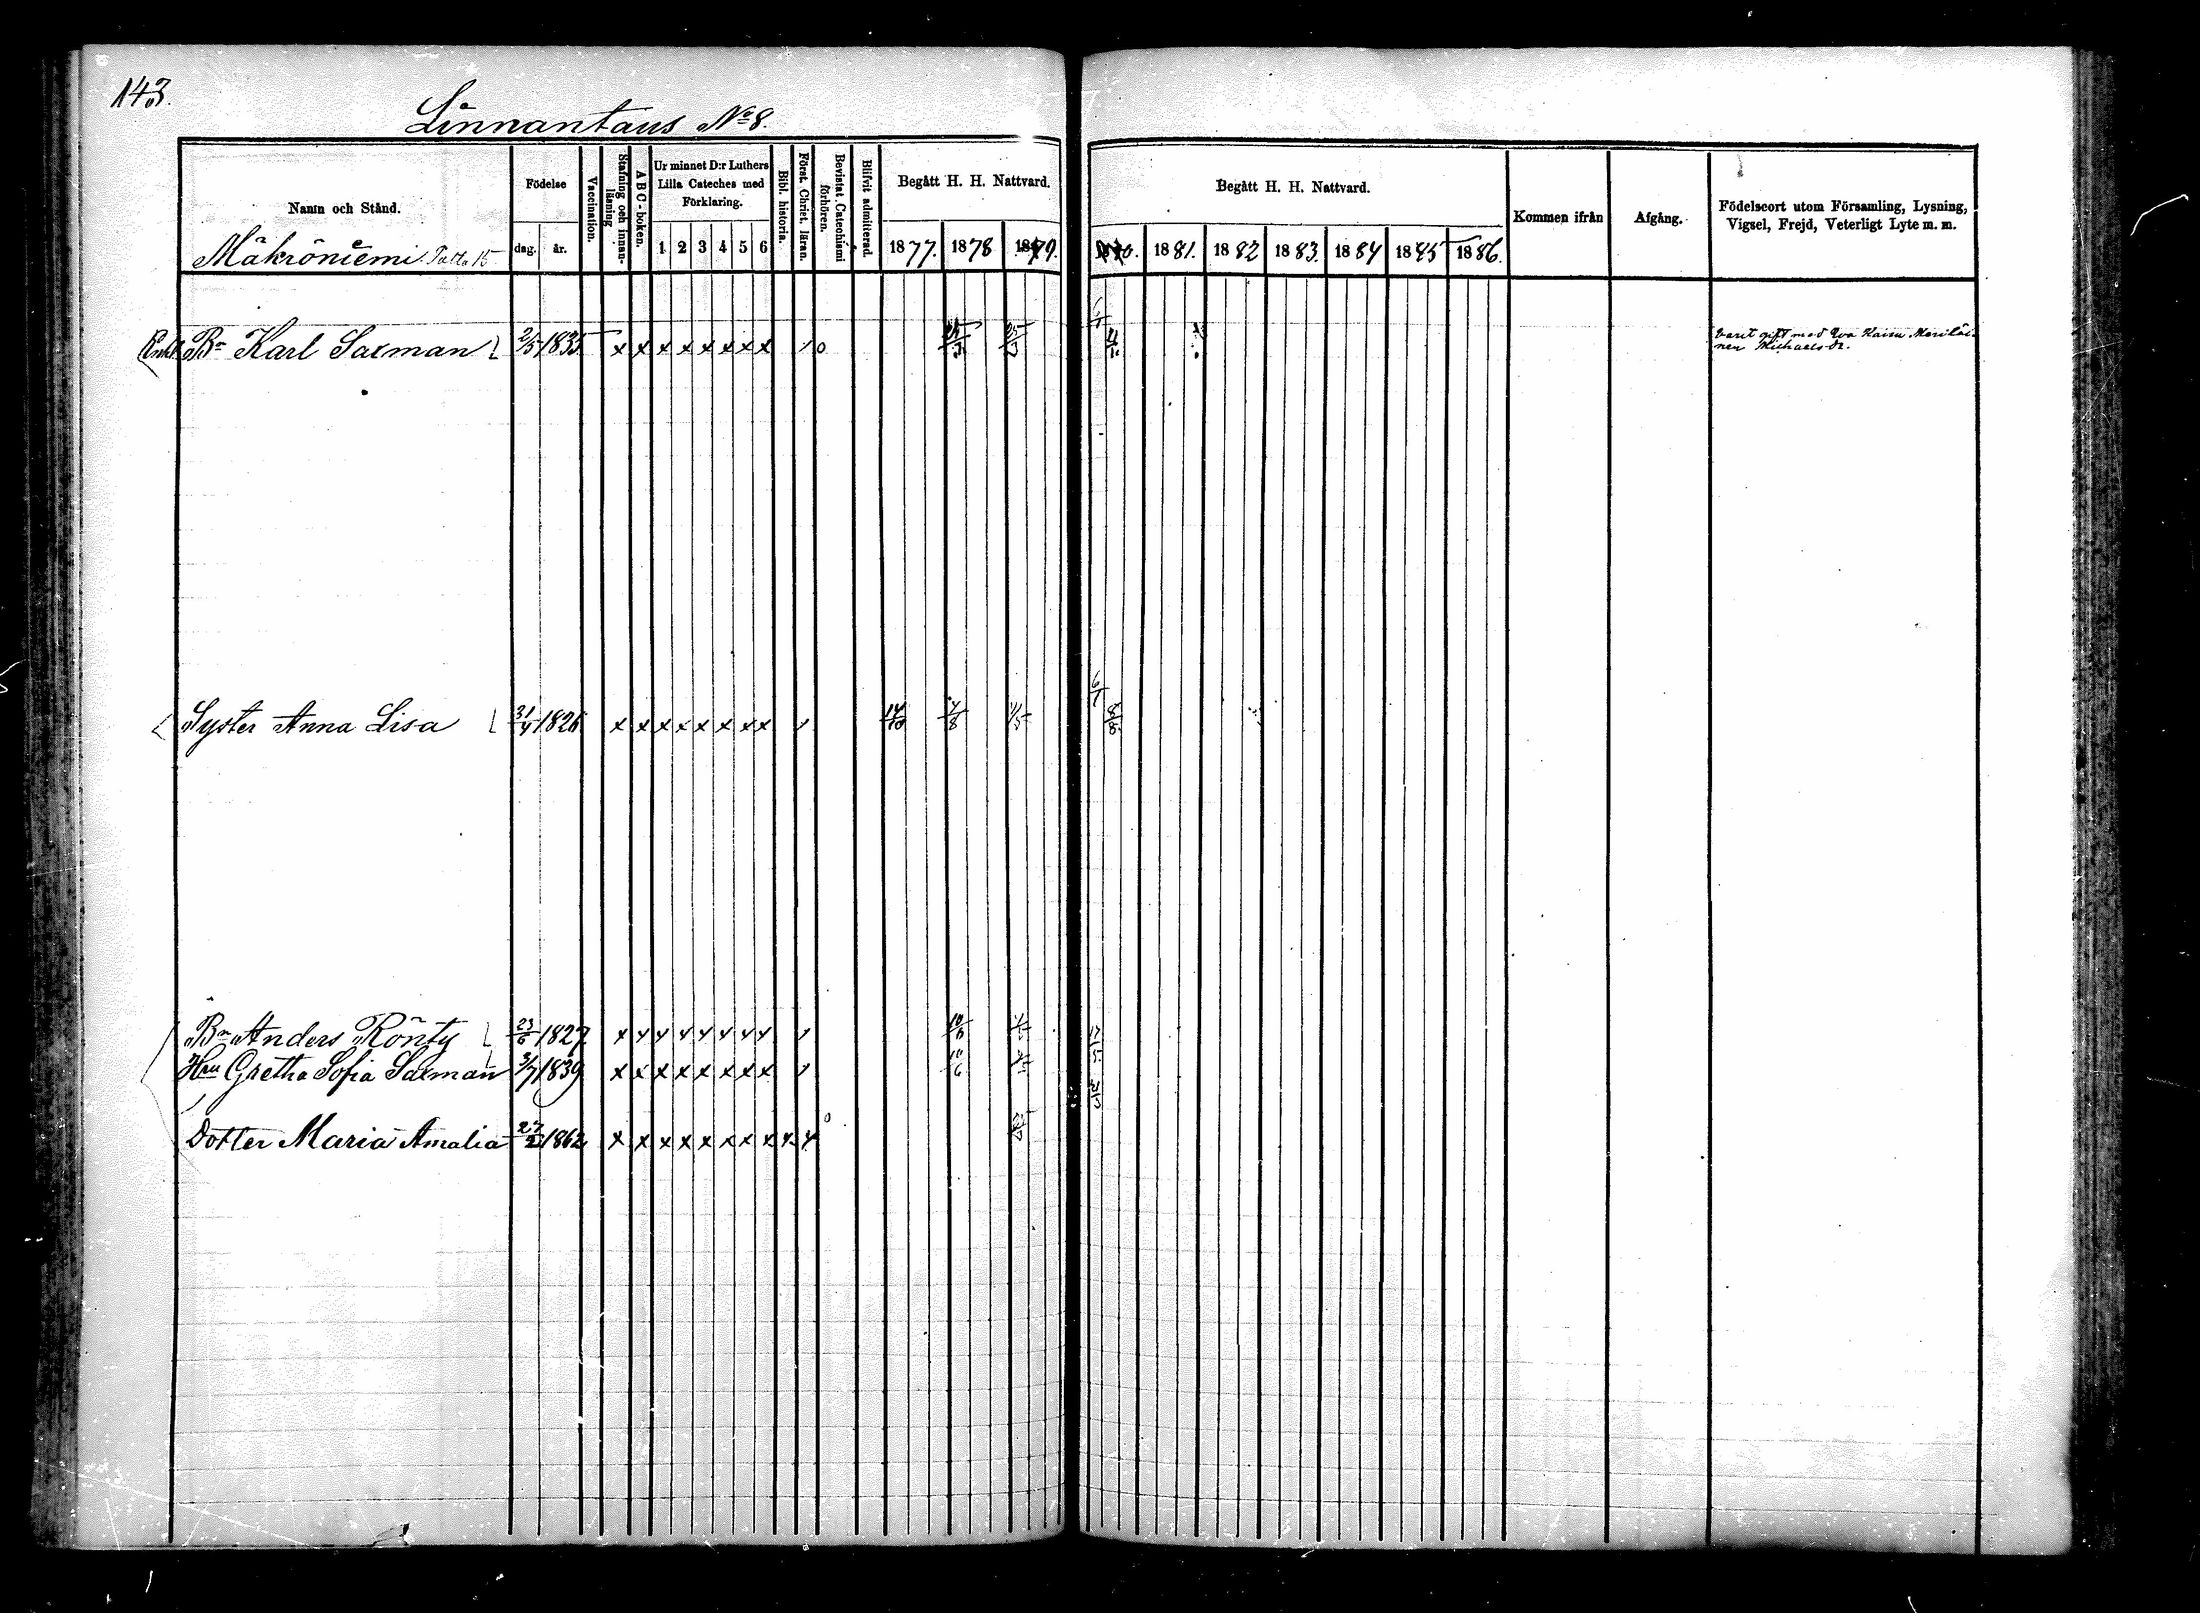 143.
Linnantaus No 8.
Namn och Stånd.
Mäkröniemi
Födelse
dag. år.
Vaccination.
Stafning och innanläsning
A B C-boken.
Ur minnet D:r Luthers Lilla Cateches med Förklaring.
1 2 3 4 5 6
Bibl. historia.
Först. Christ. läran.
Bevistat Catechismi förhören.
Blifvit admitterad.
Begått H. H. Nattvard.
1877. 1878 1879.
Begått H. H. Nattvard.
1881. 1882 1883. 1884 1885 1886.
Kommen ifrån
Afgång.
Födelseort utom Församling, Lysning, Vigsel, Frejd, Veterligt Lyte m. m.
Enkl. Bn Karl Saxman 2/5 1835 x x x x x x x x
Varit gift med Eva Kaisa
Michaels dr.
Syster Anna Lisa 31/4 1826 x x x x x x x x 14/10 7/8
Bn Anders Rönty 23/6 1827 x x x x x x x x
Hru Gretha Sofia Saxman 3/7 1839 x x x x x x x x 10/6
Dotter Maria Amalia 27/2 1862 x x x x x x x x x x